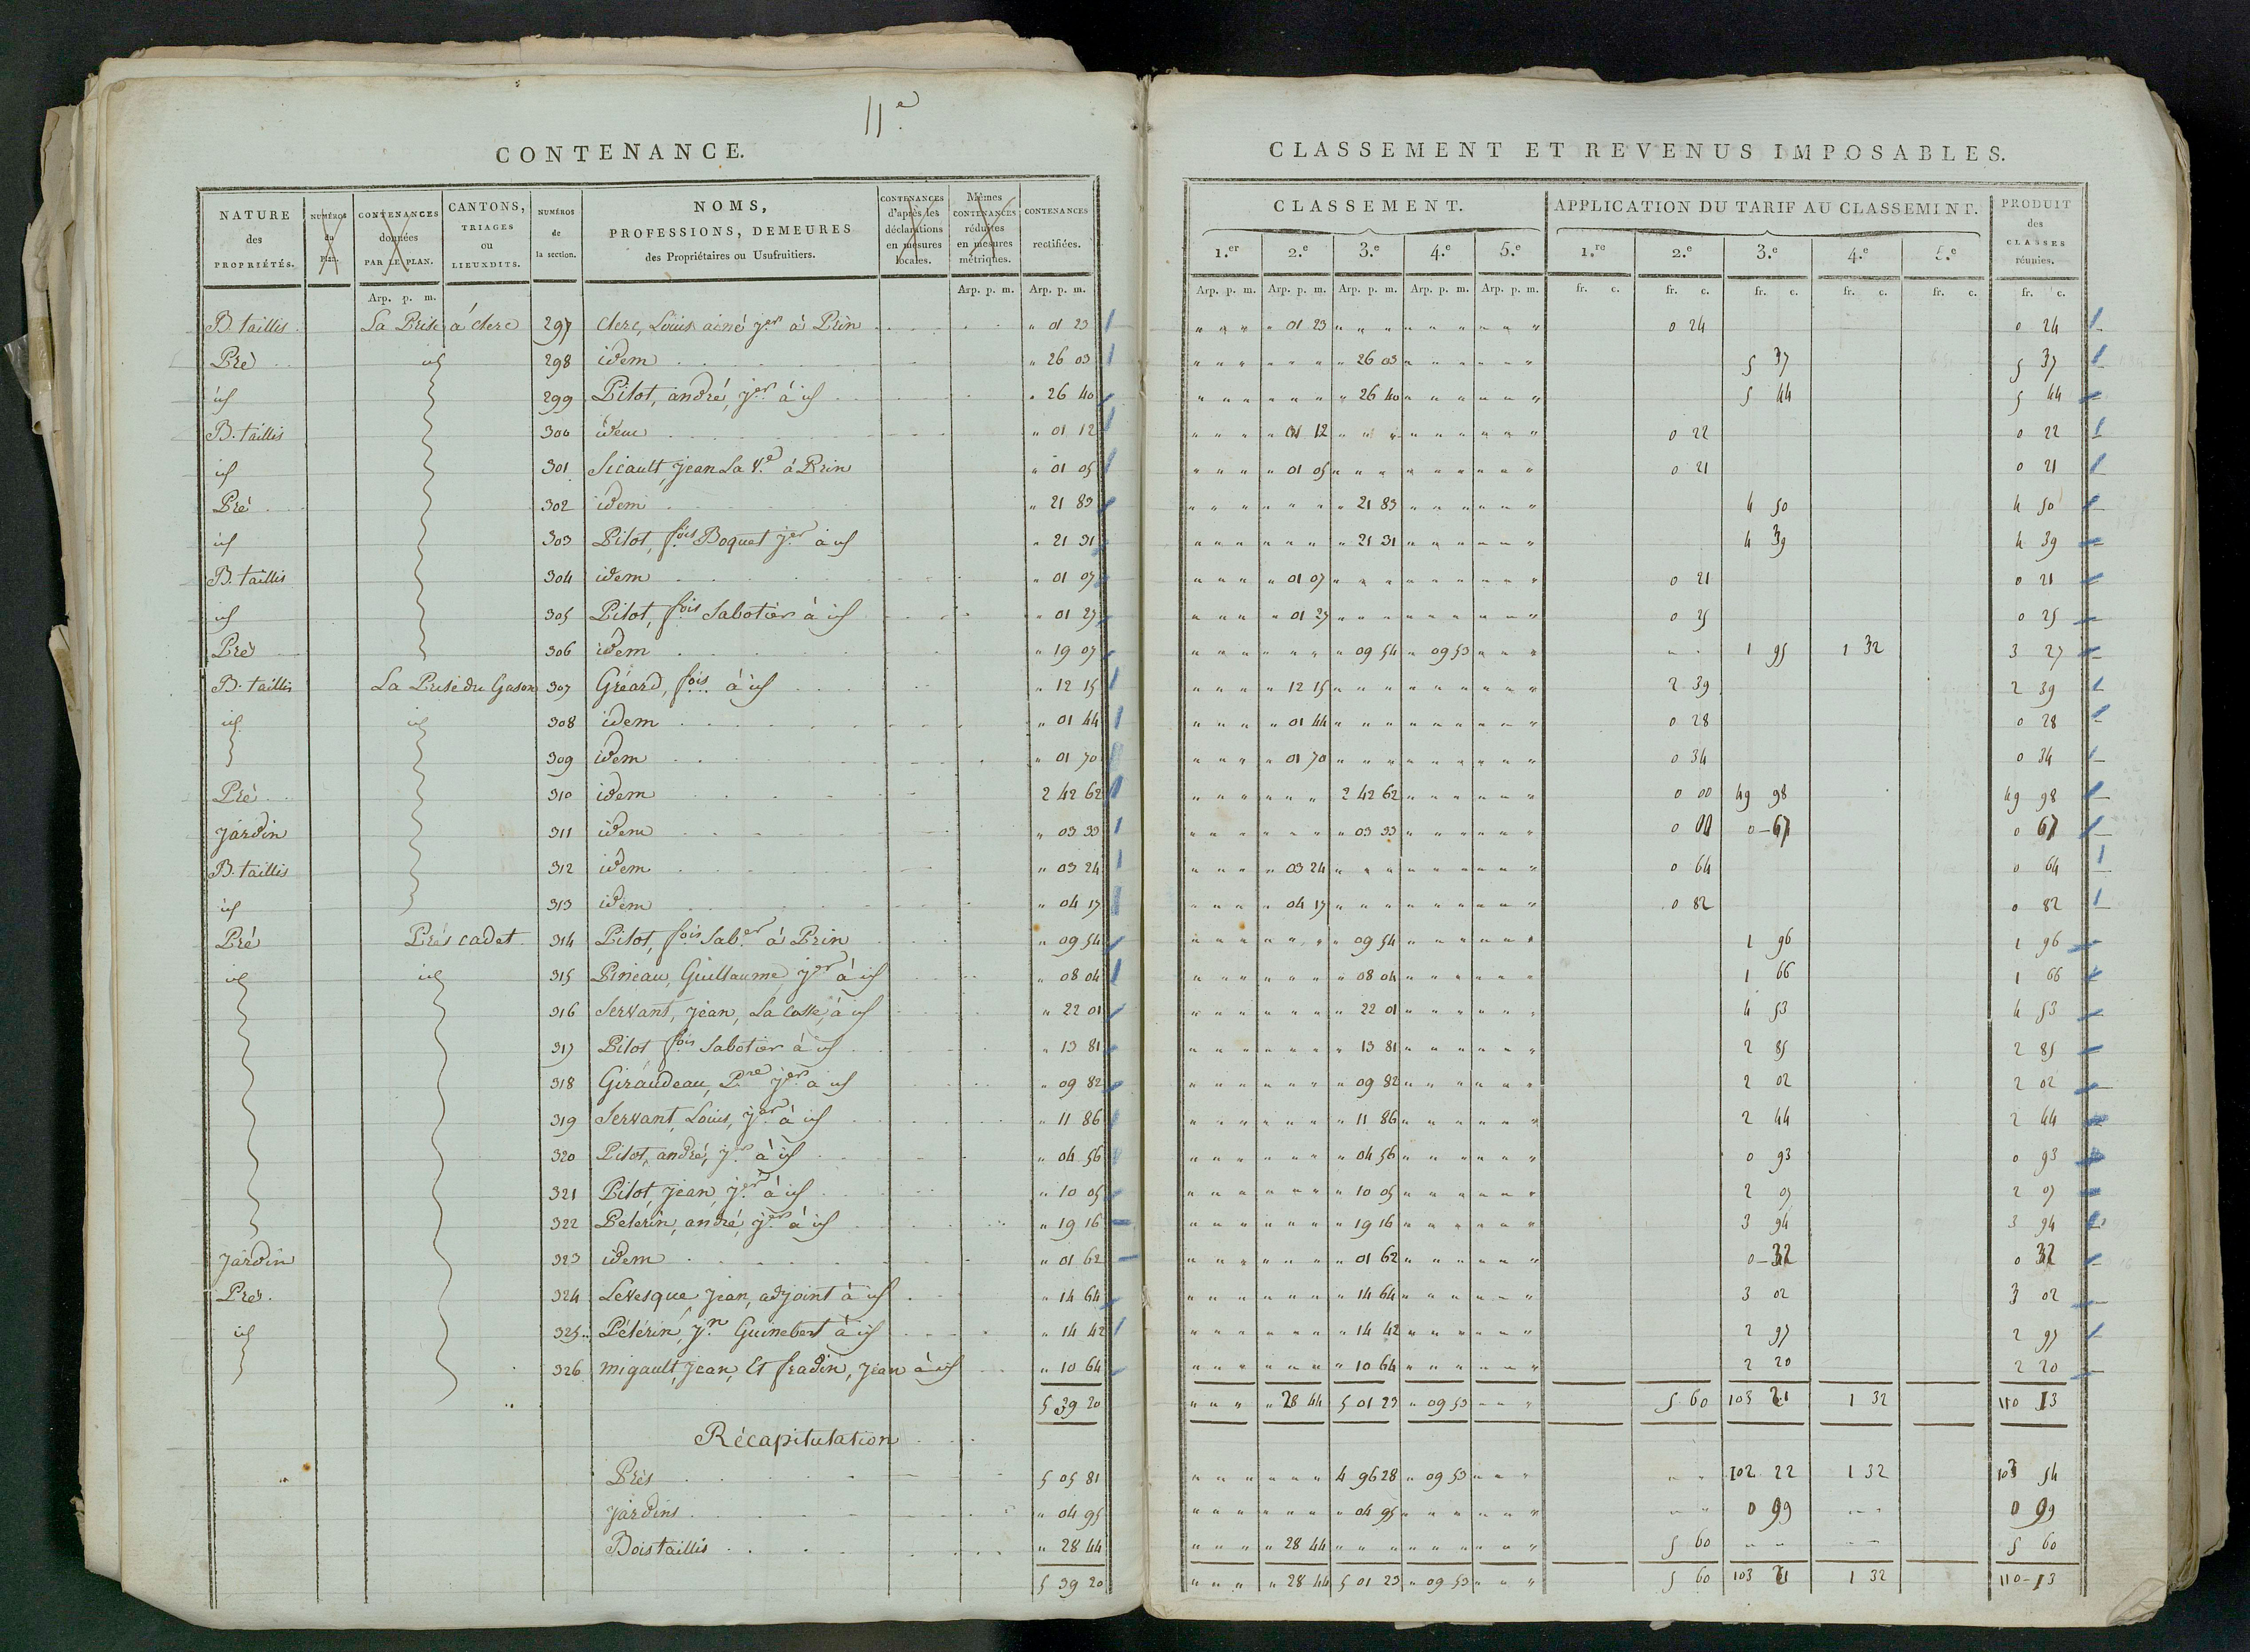 11.e
CONTENANCE.
NATURE des PROPRIÉTÉS. NUMÉROS du Plan. CONTENANCES données PAR LE PLAN. CANTONS, TRIAGES ou LIEUXDITS. NUMÉROS de la section. NOMS, PROFESSIONS, DEMEURES des Propriétaires ou Usufruitiers. CONTENANCES d'après les déclarations en mesures locales. Mêmes CONTENANCES réduites en mesures métriques. CONTENANCES rectifiées.
Arp. p. m. Arp. p. m. Arp. p. m.
B. taillis La Prise à clerc 297 clerc, Louis ainé j.er à Prin " 01 23
Pré id 298 idem " 26 03
id 299 Pilot, andré, j.er à id " 26 40
B. taillis 300 idem " 01 12
id 301 Sicault, Jean La V.e à Prin " 01 05
Pré 302 idem " 21 83
id 303 Pilot, f.ois Boquet j.er à id " 21 31
B. taillis 304 idem " 01 07
id 305 Pilot, f.ois Sabotier à id " 01 27
Pré 306 idem " 19 07
B. taillis La Prise du Gason 307 Gréard, f.ois à id " 12 15
id id 308 idem " 01 44
309 idem " 01 70
Pré 310 idem 2 42 62
Jardin 311 idem " 03 33
B. taillis 312 idem " 03 24
id 313 idem " 04 17
Pré Prés cadet 314 Pilot, f.ois Sab.er à Prin " 09 54
id id 315 Pineau, Guillaume j.er à id " 08 04
316 Servant, jean, La Cosse, à id " 22 01
317 Pilot f.ois Sabotier à id " 13 81
318 Giraudeau, P.re j.er à id " 09 82
319 Servant, Louis, j.er à id " 11 86
320 Pilot, andré, j.er à id " 04 56
321 Pilot, jean, j.er à id " 10 05
322 Pelerin, andré, j.er à id " 19 16
Jardin 323 idem " 01 62
Pré 324 Levesque jean, adjoint à id " 14 64
id 325 Pélérin, j.n Guinebert à id " 14 42
326 migault, Jean, Et fradin, Jean à id " 10 64
5 39 20
Récapitulation
Prés 5 05 81
Jardins " 04 95
Bois taillis " 28 44
5 39 20
CLASSEMENT ET REVENUS IMPOSABLES.
CLASSEMENT. APPLICATION DU TARIF AU CLASSEMENT. PRODUIT des CLASSES réunies.
1.er 2.e 3.e 4.e 5.e 1.re 2.e 3.e 4.e 5.e
Arp. p. m. Arp. p. m. Arp. p. m. Arp. p. m. Arp. p. m. fr. c. fr. c. fr. c. fr. c. fr. c. fr. c.
" 01 23 0 24 0 24
" 26 03 5 37 5 37
" 26 40 5 44 5 44
" 01 12 0 22 0 22
" 01 05 0 21 0 21
" 21 83 4 50 4 50
" 21 31 4 39 4 39
" 01 07 0 21 0 21
" 01 27 0 25 0 25
" 09 54 " 09 53 1 95 1 32 3 27
" 12 15 2 39 2 39
" 01 44 0 28 0 28
" 01 70 0 34 0 34
2 42 62 0 00 49 98 49 98
" 03 33 0 00 0-67 0 67
" 03 24 0 64 0 64
" 04 17 0 82 0 82
" 09 54 1 96 1 96
" 08 04 1 66 1 66
" 22 01 4 53 4 53
" 13 81 2 85 2 85
" 09 82 2 02 2 02
" 11 86 2 44 2 44
" 04 56 0 93 0 93
" 10 05 2 07 2 07
" 19 16 3 94 3 94
" 01 62 0-32 0 32
" 14 64 3 02 3 02
" 14 42 2 97 2 97
" 10 64 2 20 2 20
" 28 44 5 01 23 " 09 53 5 60 103 21 1 32 110 13
4 96 28 " 09 53 102 22 1 32 103 54
" 04 95 0 99 0 99
" 28 44 5 60 5 60
" 28 44 5 01 23 " 09 53 5 60 103 21 1 32 110-13